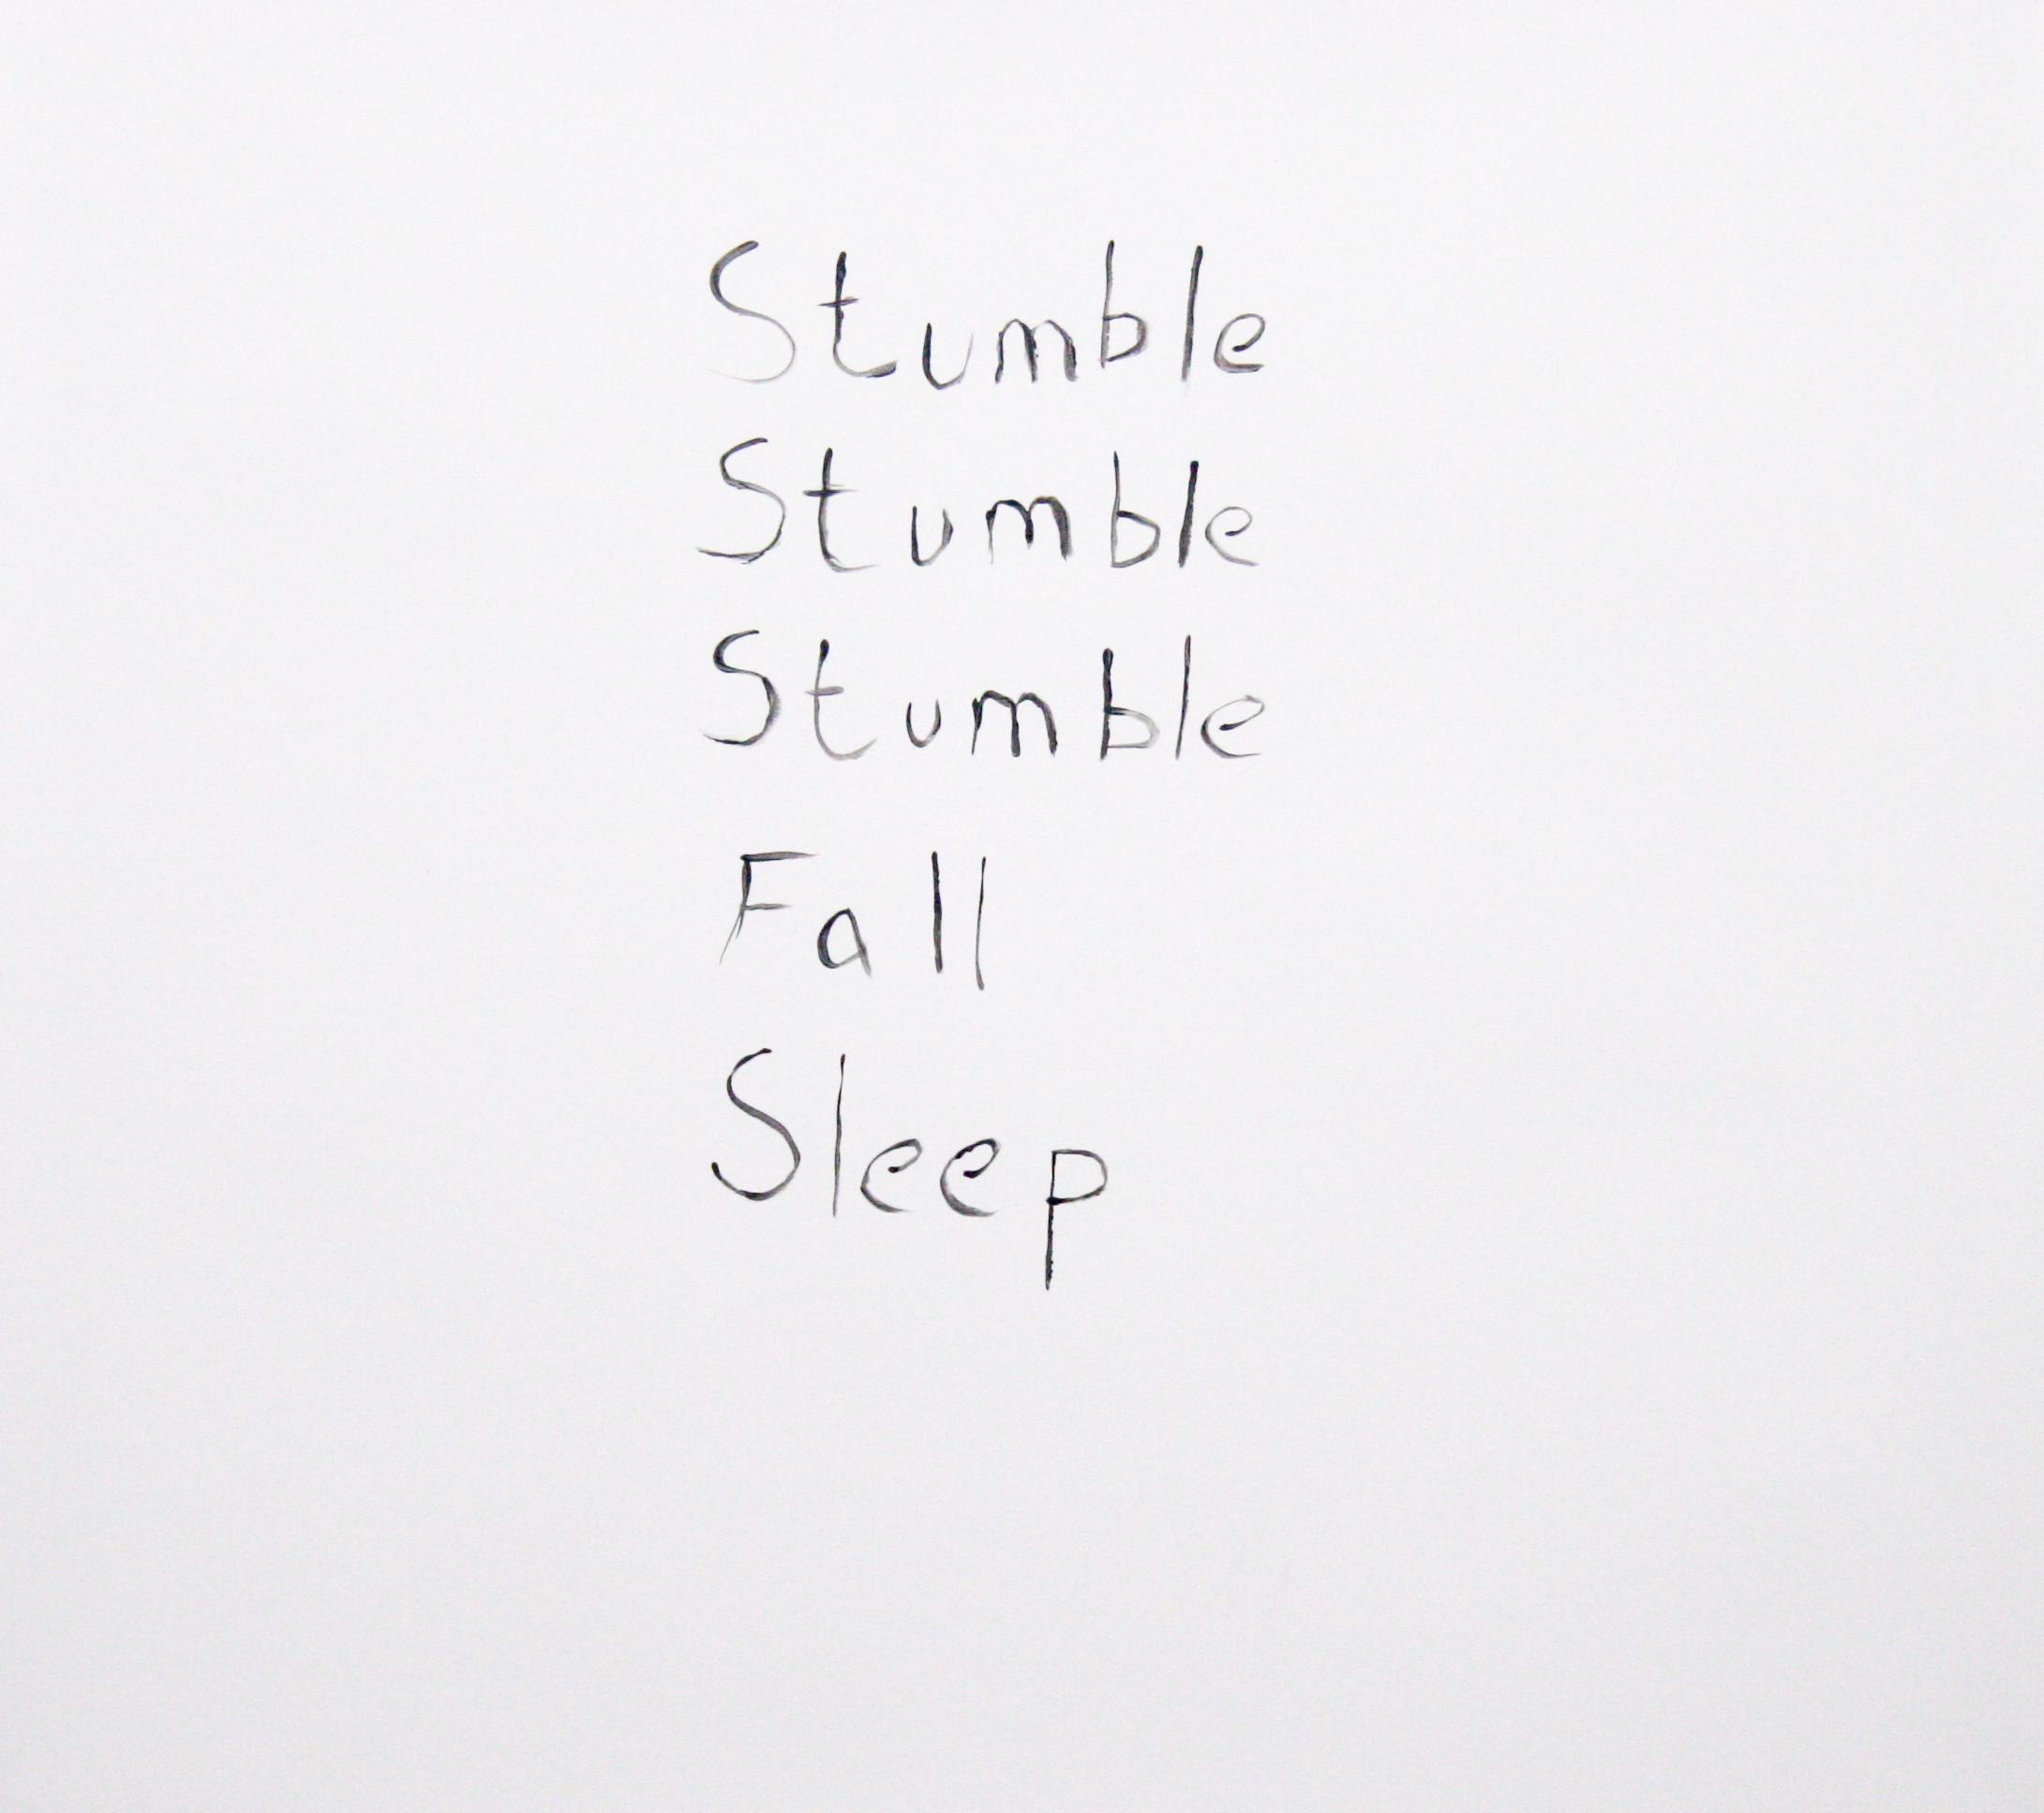 Stumble
Stumble
Stumble
Fall
Sleep